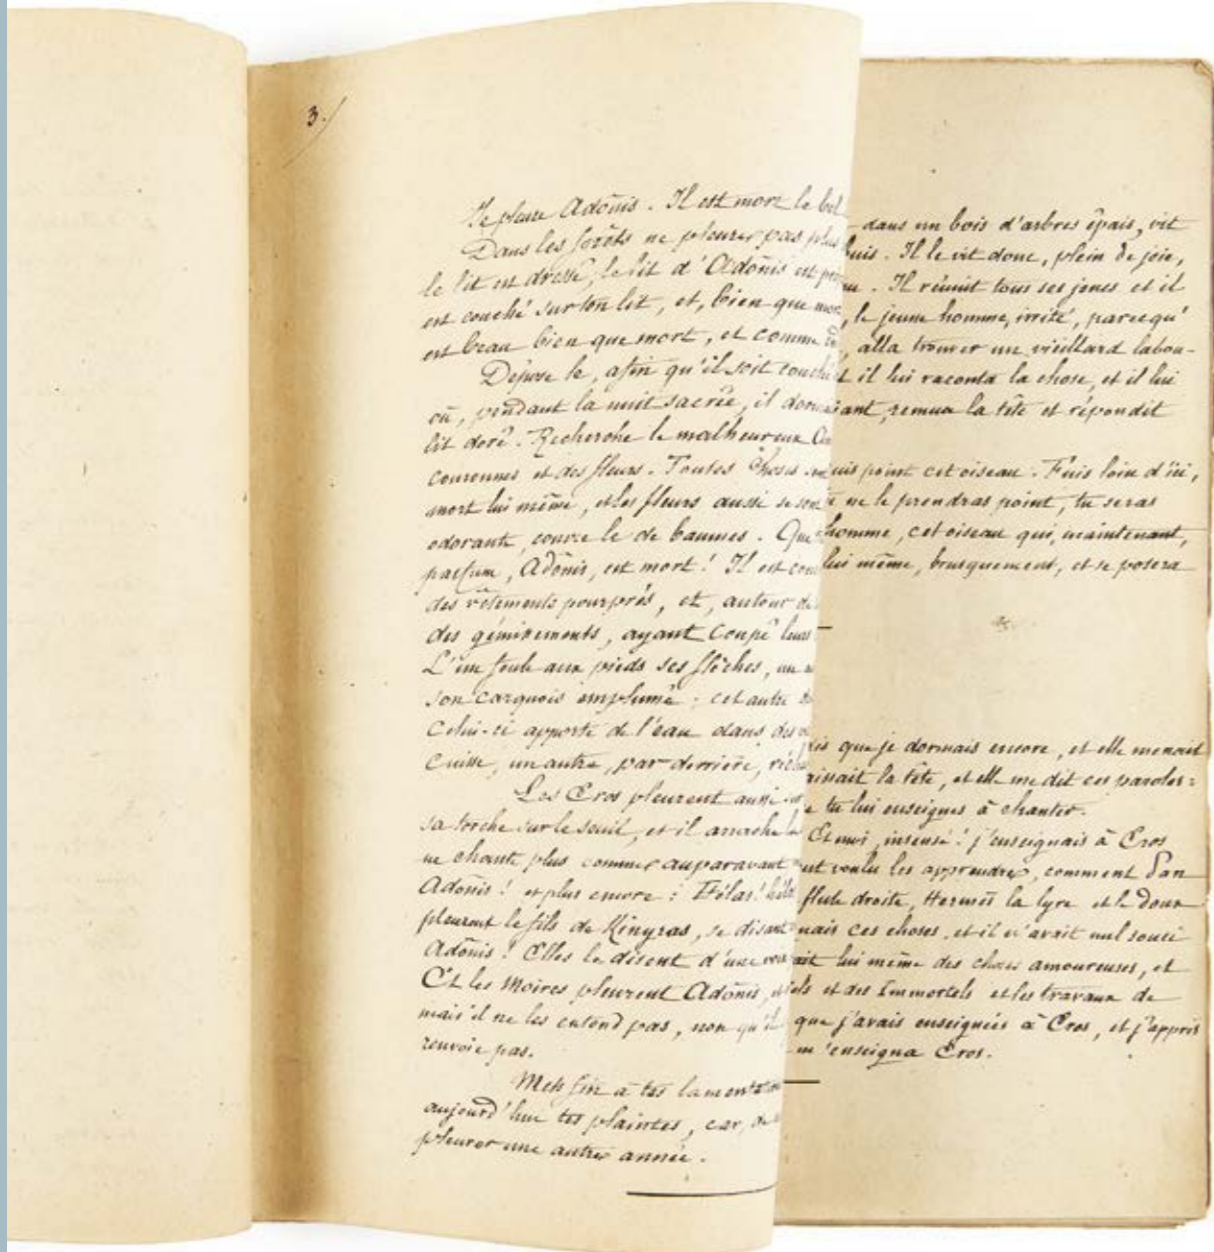 3.
Je pleure Adônis. Il est mort le bel
Dans les forêts ne pleurez pas plus
le lit est dressé, le lit d'Adônis est
est couché sur ton lit, et, bien que
est beau bien que mort, et comme
Dépose le, afin qu'il soit couché
où, pendant la nuit sacrée, il
lit doré. Recherche le malheureux
couronnes et des fleurs. Toutes choses
mort lui même, et les fleurs aussi se sont
odorante, couvre le de baumes. Que
parfum, Adônis, est mort! Il est
des vêtements pourprés, et, autour de
des gémissements, ayant coupé leurs
L'un foule aux pieds ses flèches, un
son carquois emplumé; cet autre
Celui-ci apporte de l'eau dans des
cuisse, un autre, par derrière,
Les Eros pleurent aussi
sa torche sur le seuil, et il arrache
ne chante plus comme auparavant
Adônis! et plus encore: Hélas! hélas
pleurent le fils de Kinyras, se disant
Adônis! Elles le disent d'une
Et les Moires pleurent Adônis,
mais il ne les entend pas, non qu'il
renvoie pas.
Mets fin à tes lamentations
aujourd'hui tes plaintes, car,
pleurer une autre année.
dans un bois d'arbres épais, vit
buis. Il le vit donc, plein de joie,
Il réunit tous ses joncs et il
le jeune homme, irrité, parcequ'
alla trouver un vieillard labou-
il lui raconta la chose, et il lui
remua la tête et répondit
point cet oiseau. Fuis loin d'ici,
ne le prendras point, tu seras
homme, cet oiseau qui, maintenant,
lui même, brusquement, et se posera
que je dormais encore, et elle menait
baissait la tête, et elle me dit ces paroles:
tu lui enseignes à chanter.
Et moi, insensé! j'enseignais à Eros
voulu les apprendre, comment Pan
flute droite, Hermès la lyre et le doux
ces choses, et il n'avait nul souci
lui même des choses amoureuses, et
et des Immortels et les travaux de
que j'avais enseignées à Eros, et j'appris
m'enseigna Eros.